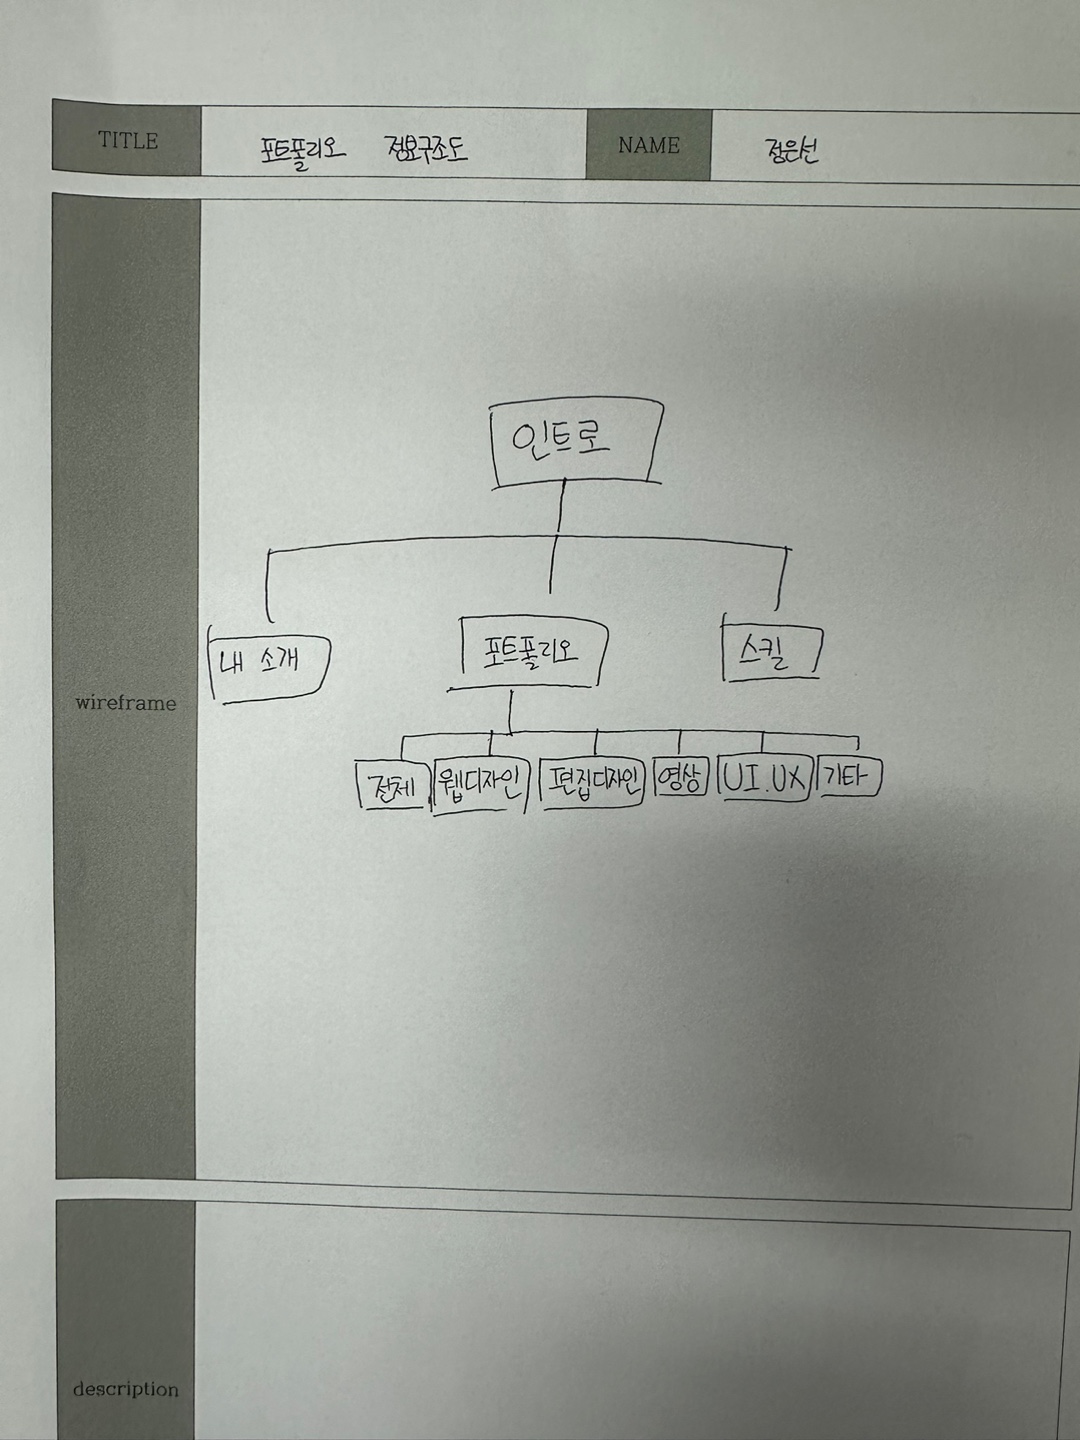 TITLE 포트폴리오 정보구조도 NAME 정은선
wireframe
인트로
내 소개 포트폴리오 스킬
전체 웹디자인 편집디자인 영상 UI.UX 기타
description